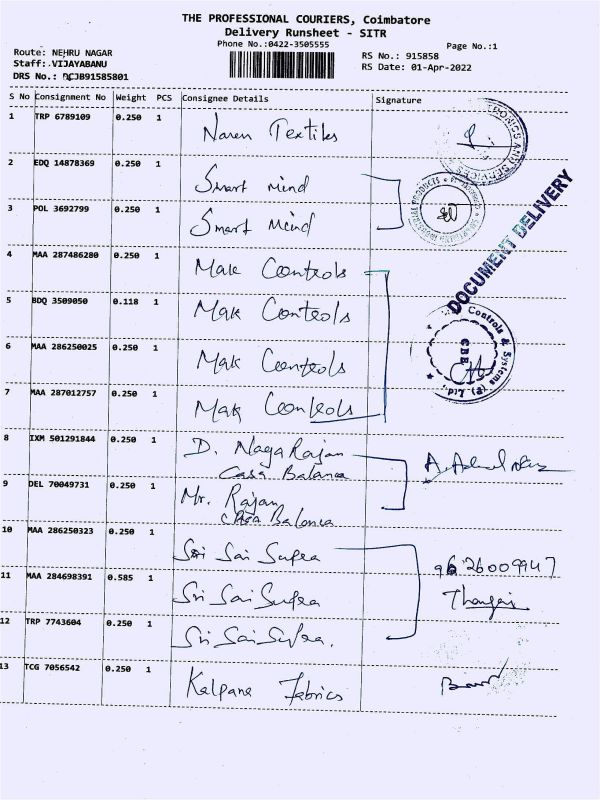 THE PROFESSIONAL COURIERS, Coimbatore
Delivery Runsheet - SITR
Phone No.:0422-3505555
Page No.:1
Route: NEHRU NAGAR
Staff: VIJAYABANU
DRS No.: DCJB91585801
RS No.: 915858
RS Date: 01-Apr-2022
S No Consignment No Weight PCS Consignee Details Signature
1 TRP 6789109 0.250 1 Naren Textiles
2 EDQ 14878369 0.250 1 Smart mind
3 POL 3692799 0.250 1 Smart Mind
4 MAA 287486280 0.250 1 Mak Controls
5 BDQ 3509050 0.118 1 Mak Controls
6 MAA 286250025 0.250 1 Mak Controls
7 MAA 287012757 0.250 1 Mak Controls
DOCUMENT DELIVERY
Controls & Systems (P) Ltd.
CBE
8 IXM 501291844 0.250 1 D. Naga Rajan
Casa
9 DEL 70049731 0.250 1 Mr. Rajan
10 MAA 286250323 0.250 1 Sri Sai Supra
9626009947
11 MAA 284698391 0.585 1 Sri Sai Supra
12 TRP 7743604 0.250 1 Sri Sai Supra.
13 TCG 7056542 0.250 1 Kalpana Fabrics